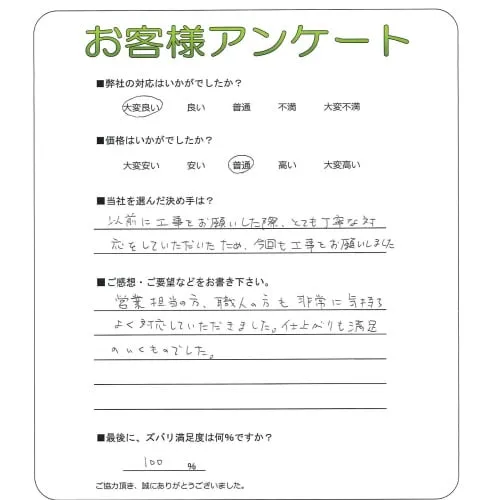 お客様アンケート
■弊社の対応はいかがでしたか？
大変良い 良い 普通 不満 大変不満
■価格はいかがでしたか？
大変安い 安い 普通 高い 大変高い
■当社を選んだ決め手は？
以前に工事をお願いした際、とても丁寧な対
応をしていただいたため、今回も工事をお願いしました
■ご感想・ご要望などをお書き下さい。
営業担当の方、職人の方も非常に気持ち
よく対応していただきました。仕上がりも満足
のいくものでした。
■最後に、ズバリ満足度は何%ですか？
100 %
ご協力頂き、誠にありがとうございました。